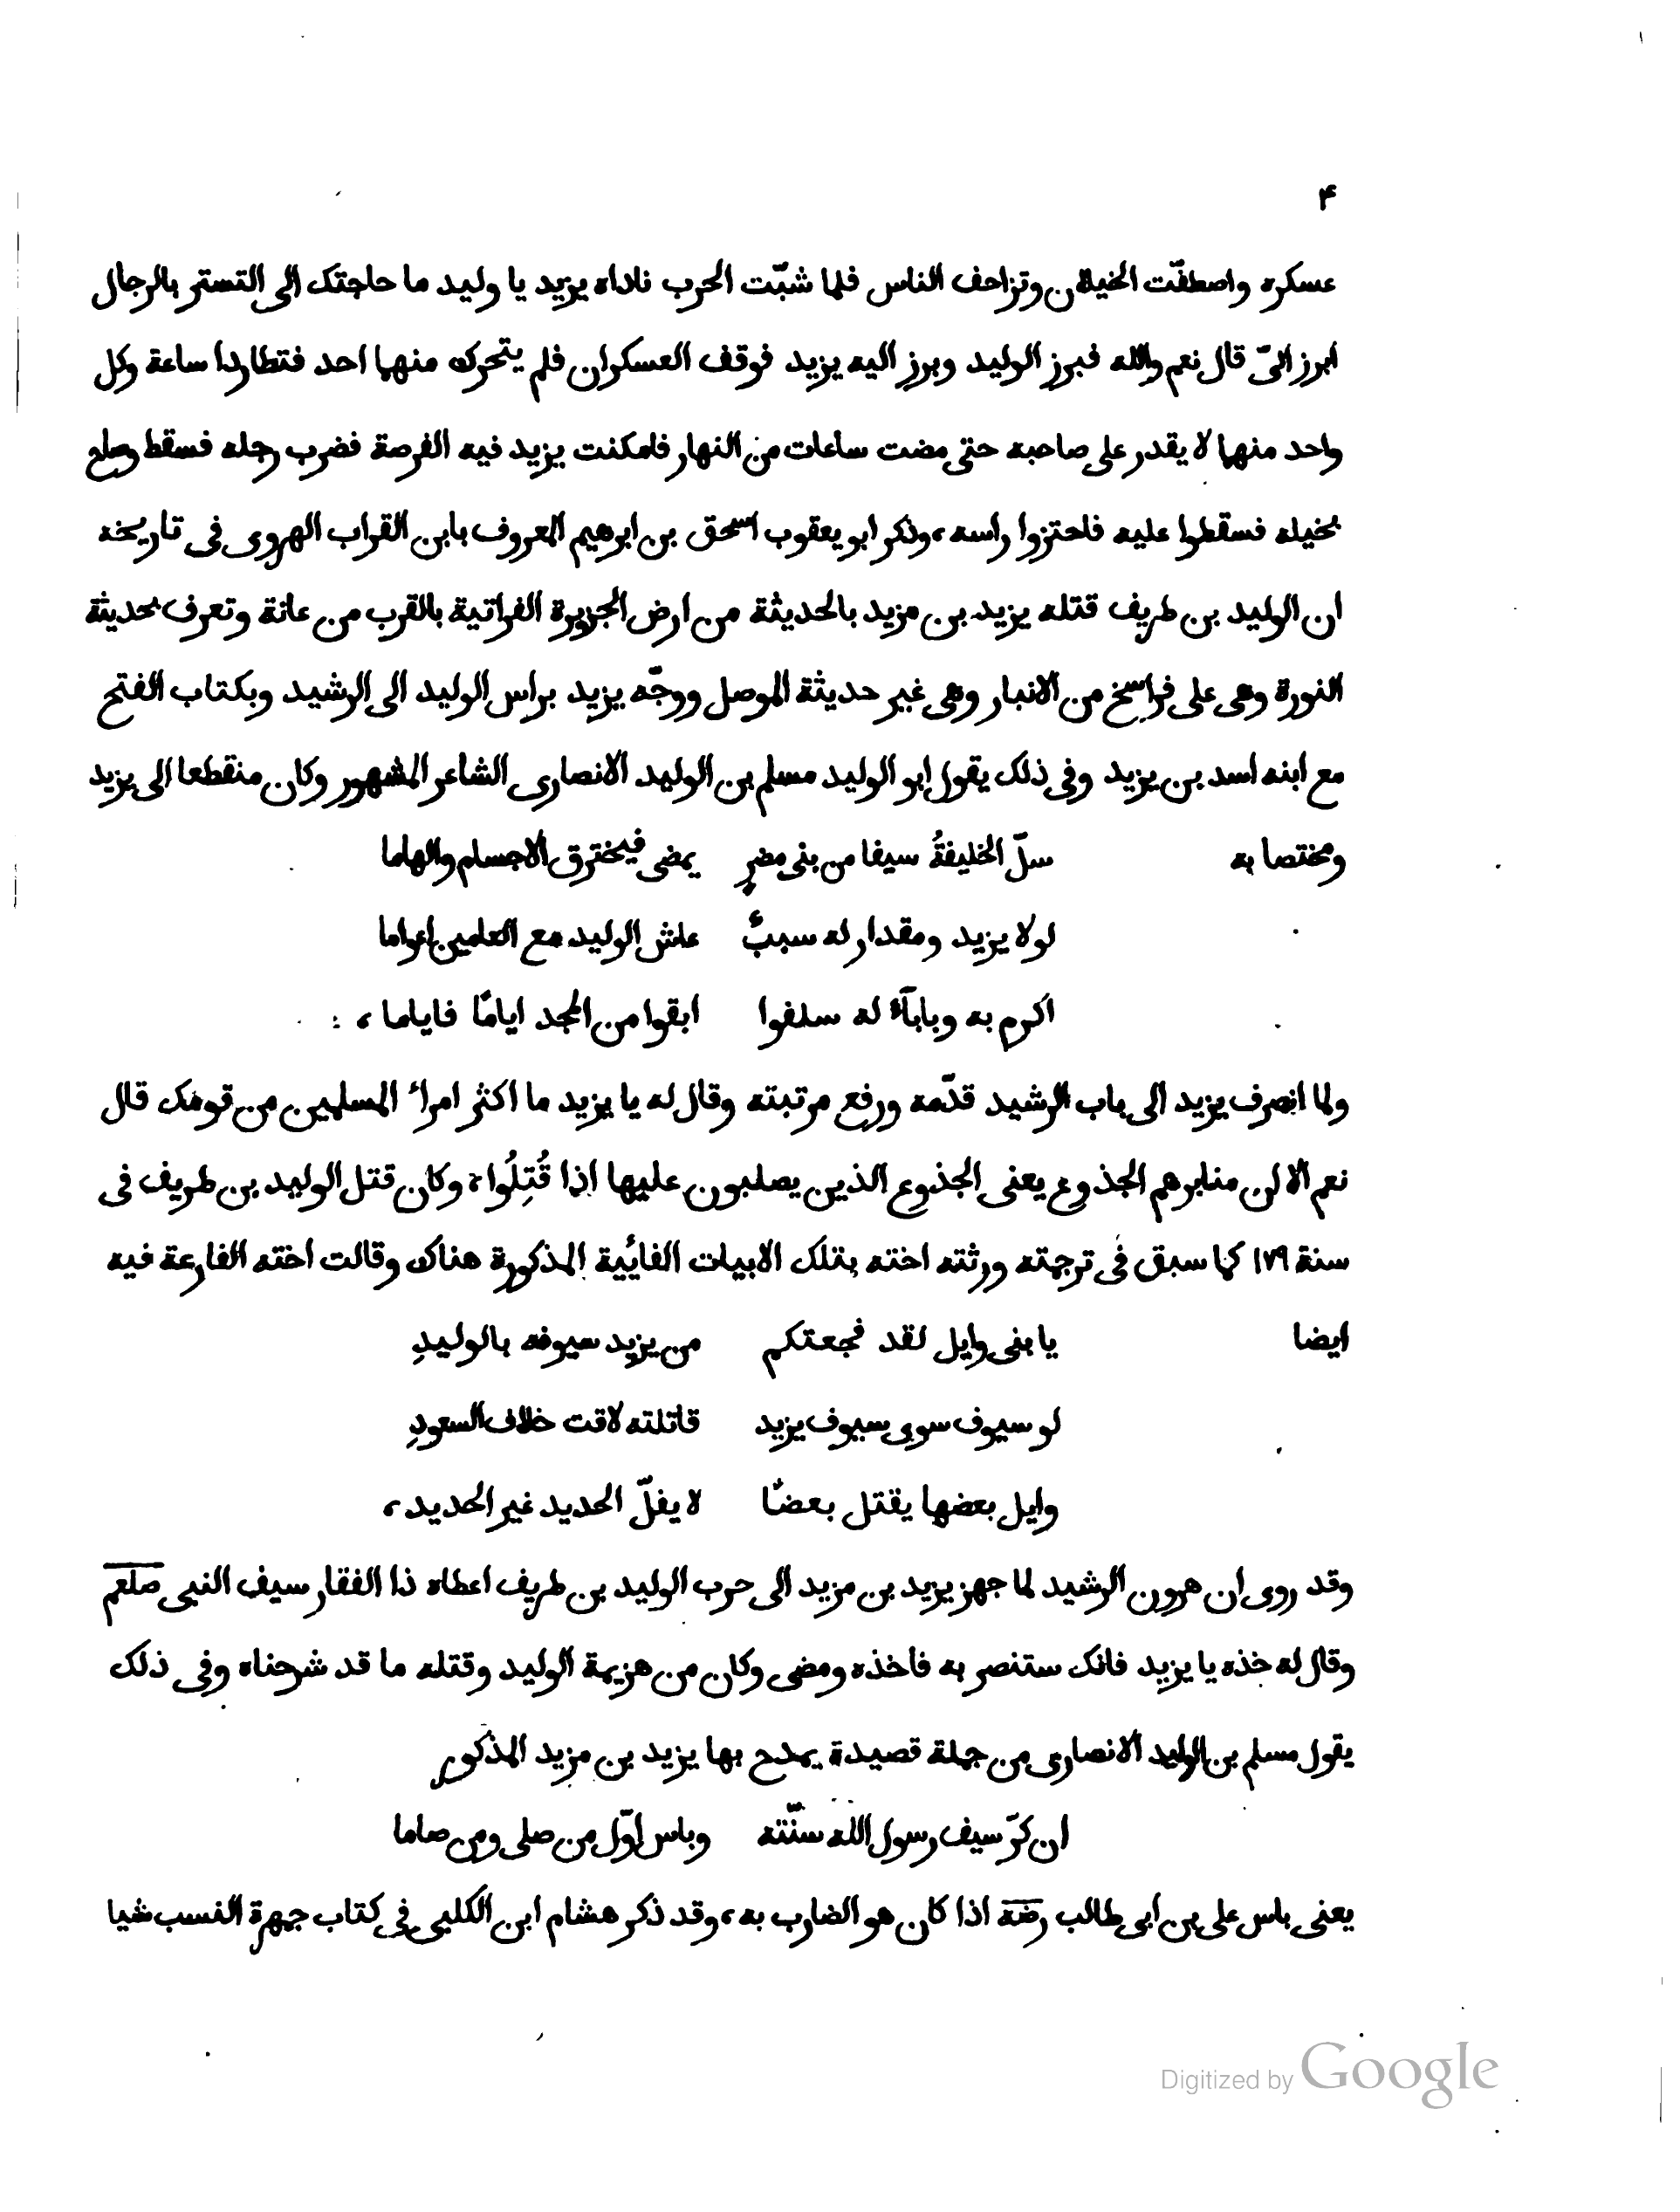 ۴
عسكره واصطفّت الخيلان وتزاحف الناس فلما شبّت الحرب ناداه يزيد يا وليد ما حاجتك الى التستر بالرجال
ابرز الىّ قال نعم والله فبرز الوليد وبرز اليه يزيد فوقف العسكران فلم يتحرك منهما احد فتطاردا ساعة وكل
واحد منهما لا يقدر على صاحبه حتى مضت ساعات من النهار فامكنت يزيد فيه الفرصة فضرب رجله فسقط وصاح
بخيله فسقطوا عليه فاحتزوا راسه، وذكر ابو يعقوب اسحق بن ابرهيم المعروف بابن القراب الهروى فى تاريخه
ان الوليد بن طريف قتله يزيد بن مزيد بالحديثة من ارض الجزيرة الفراتية بالقرب من عانة وتعرف بحديثة
النورة وهى على فراسخ من الانبار وهى غير حديثة الموصل ووجّه يزيد براس الوليد الى الرشيد وبكتاب الفتح
مع ابنه اسد بن يزيد وفى ذلك يقول ابو الوليد مسلم بن الوليد الانصارى الشاعر المشهور وكان منقطعا الى يزيد
ومختصا به سلّ الخليفةُ سيفا من بنى مضرٍ يمضى فيخترق الاجسام والهاما
لولا يزيد ومقدار له سببٌ عاش الوليد مع العامين اعواما
اكرم به وبابآء له سلفوا ابقوا من المجد ايامًا فاياما، :
ولما انصرف يزيد الى باب الرشيد قدّمه ورفع مرتبته وقال له يا يزيد ما اكثر امراء المسلمين من قومك قال
نعم الا ان منابرهم الجذوع يعنى الجذوع الذين يصلبون عليها اذا قُتِلُوا، وكان قتل الوليد بن طريف فى
سنة ١٧٩ كما سبق فى ترجمته ورثته اخته بتلك الابيات الفائية المذكورة هناك وقالت اخته الفارعة فيه
ايضا يا بنى وايل لقد فجعتكم من يزيد سيوفه بالوليدِ
لو سيوف سوى سيوف يزيد قاتلته لاقت خلاف السعودِ
وايل بعضها يقتل بعضًا لا يفلّ الحديد غير الحديد،
وقد روى ان هرون الرشيد لما جهز يزيد بن مزيد الى حرب الوليد بن طريف اعطاه ذا الفقار سيف النبى صلعم
وقال له خذه يا يزيد فانك ستنصر به فاخذه ومضى وكان من هزيمة الوليد وقتله ما قد شرحناه وفى ذلك
يقول مسلم بن الوليد الانصارى من جملة قصيدة يمدح بها يزيد بن مزيد المذكور
ان كرّ سيف رسول الله سنّته وباس اوّل من صلى ومن صاما
يعنى باس على بن ابى طالب رضه اذا كان هو الضارب به، وقد ذكر هشام ابن الكلبى فى كتاب جمهرة النسب شيا
Digitized by Google